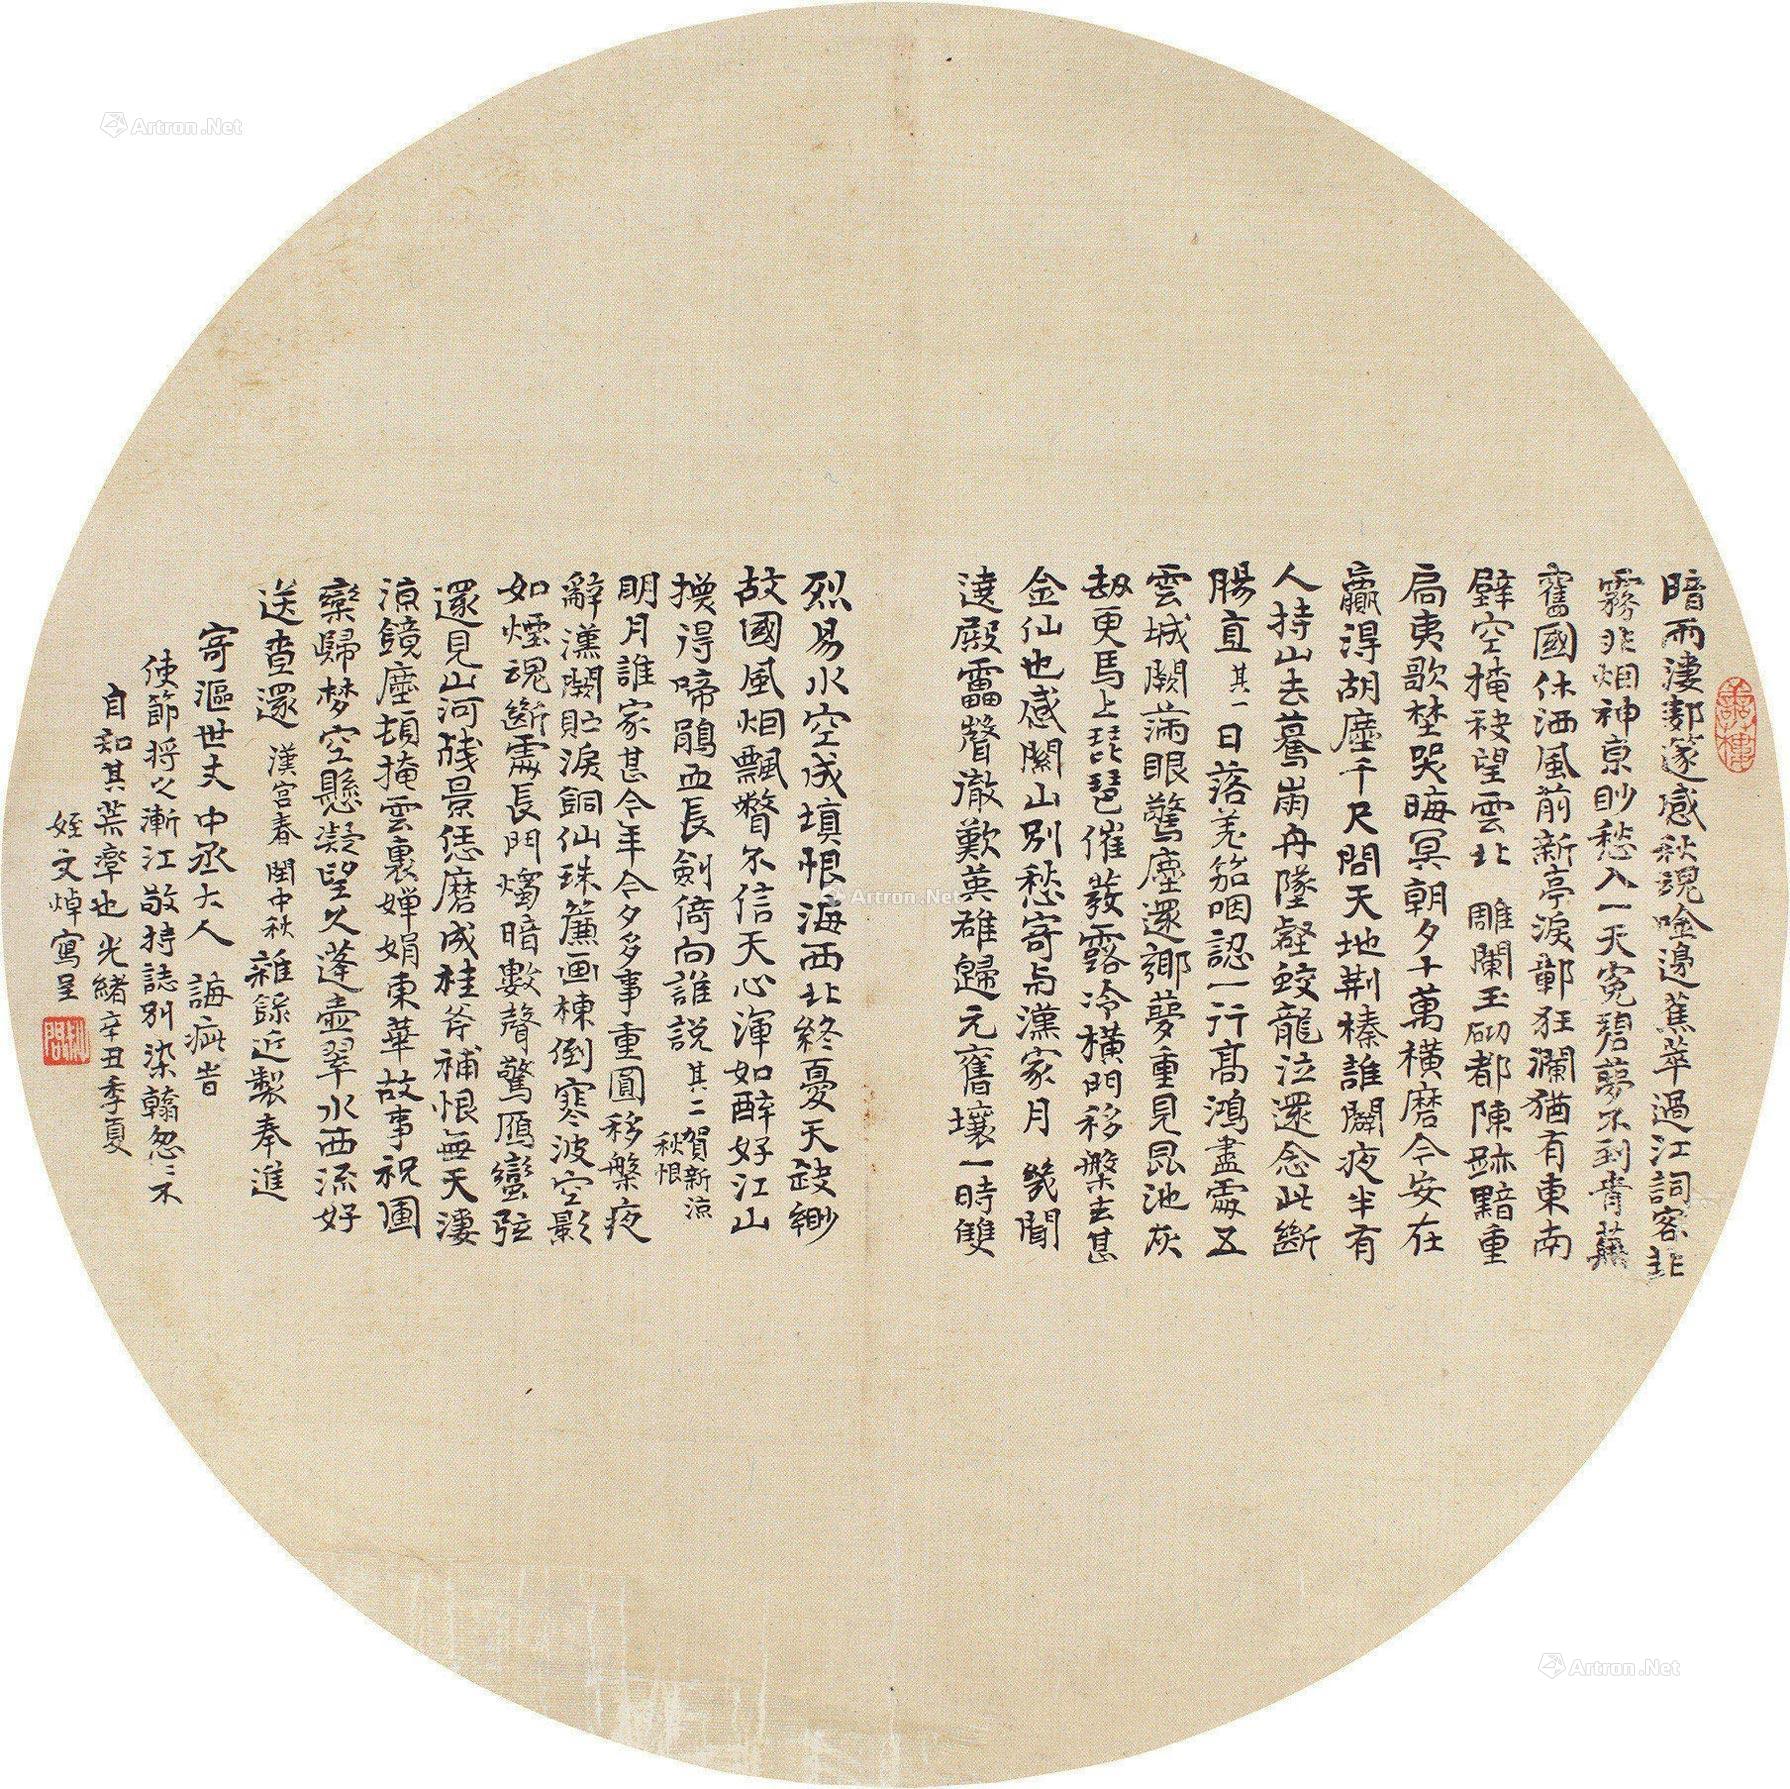 暗雨淒鄰遂感秋魂唫邊蕉萃過江詞客非
霧非烟神京眇愁入一天寃碧夢不到青蕪
舊國休洒風前新亭淚鄣狂瀾猶有東南
壁空掩袂望雲北雕闌玉砌都陳跡黯重
扃夷歌埜哭晦冥朝夕十萬橫磨今安在
贏得胡塵千尺問天地荆榛誰闢夜半有
人持山去驀崩舟墜壑蛟龍泣還念此斷
腸直其一日落羌笳咽認一行高鴻盡處五
雲城闕滿眼驚塵還鄉夢重見昆池灰
劫更馬上琵琶催發露冷橫門移槃去甚
金仙也感關山別愁寄與漢家月幾聞
遶殿靁聲徹歎英雄歸元舊壤一時雙
烈易水空成填恨海西北終憂天缺緲
故國風烟飄瞥不信天心渾如醉好江山
換得啼鵑血長劍倚向誰說其二賀新涼
秋恨
明月誰家甚今年今夕多事重圓移槃夜
辭漢闕貯淚銅仙珠簾画棟倒寒波空影
如煙魂斷處長門燭暗數聲驚鴈蠻弦
還見山河殘景恁磨成桂斧補恨無天淒
涼鏡塵頓掩雲裏嬋娟東華故事祝團
欒歸夢空懸凝望久蓬壺翠水西流好
送查還漢宮春閏中秋雜錄近製奉進
寄漚世丈中丞大人誨疵旹
使節將之漸江敬持誌別染翰怱怱不
自知其蕪率也光緒辛丑季夏
姪文焯寫呈
Artron.Net
Artron.Net
Artron.Net